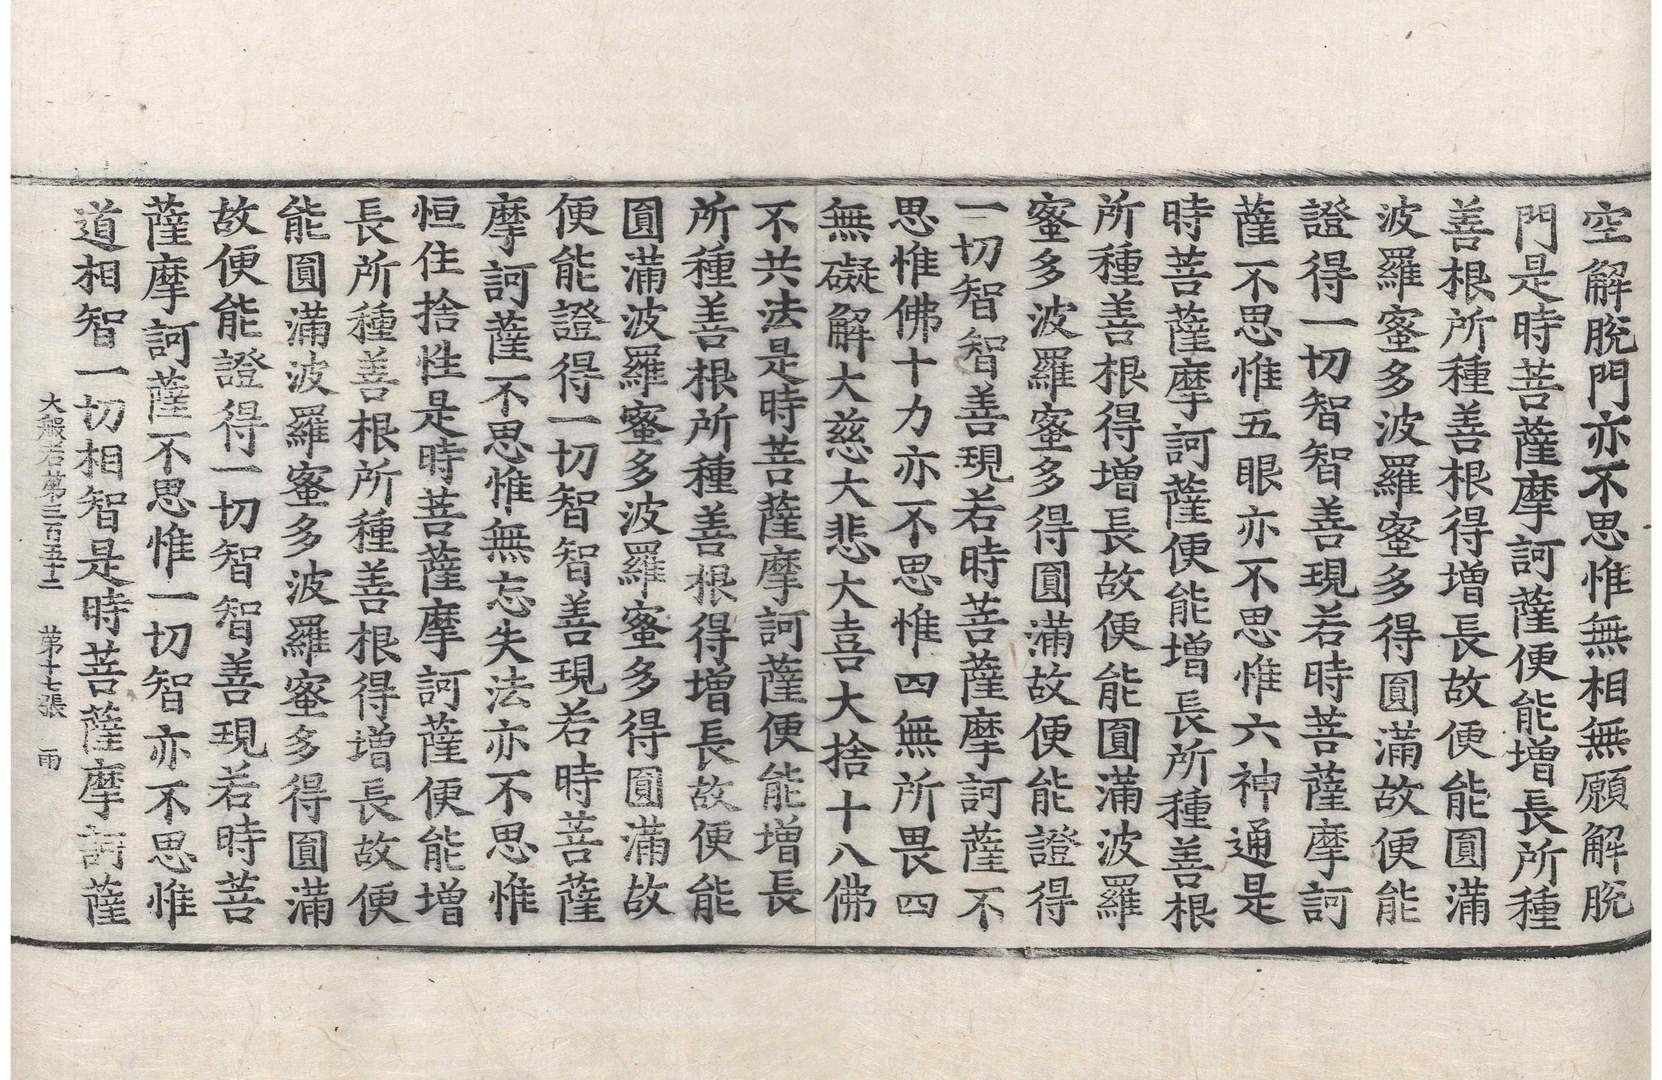 空解脫門亦不思惟無相無願解脫
門是時菩薩摩訶薩便能增長所種
善根所種善根得增長故便能圓滿
波羅蜜多波羅蜜多得圓滿故便能
證得一切智智善現若時菩薩摩訶
薩不思惟五眼亦不思惟六神通是
時菩薩摩訶薩便能增長所種善根
所種善根得增長故便能圓滿波羅
蜜多波羅蜜多得圓滿故便能證得
一切智智善現若時菩薩摩訶薩不
思惟佛十力亦不思惟四無所畏四
無礙解大慈大悲大喜大捨十八佛
不共法是時菩薩摩訶薩便能增長
所種善根所種善根得增長故便能
圓滿波羅蜜多波羅蜜多得圓滿故
便能證得一切智智善現若時菩薩
摩訶薩不思惟無忘失法亦不思惟
恒住捨性是時菩薩摩訶薩便能增
長所種善根所種善根得增長故便
能圓滿波羅蜜多波羅蜜多得圓滿
故便能證得一切智智善現若時菩
薩摩訶薩不思惟一切智亦不思惟
道相智一切相智是時菩薩摩訶薩
大般若第三百五十二 第十七張 雨